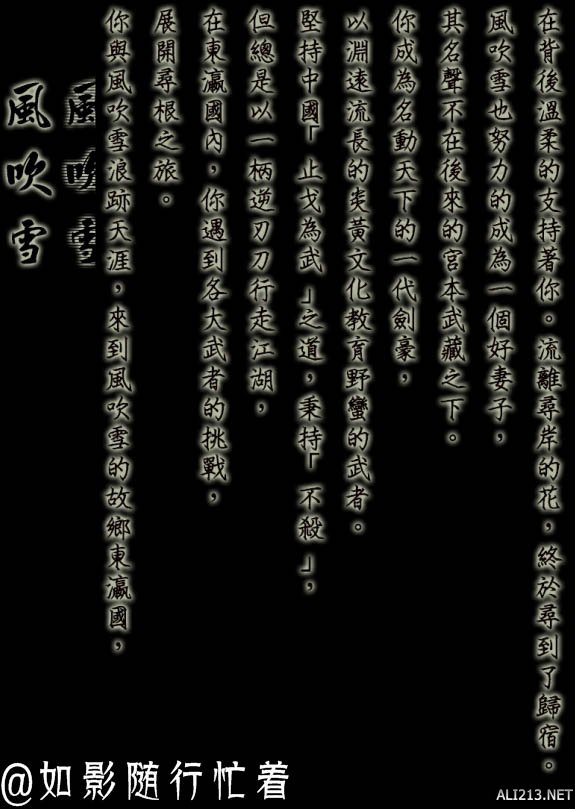 風吹雪
風吹雪
你與風吹雪浪跡天涯，來到風吹雪的故鄉東瀛國，
展開尋根之旅。
在東瀛國內，你遇到各大武者的挑戰，
但總是以一柄逆刃刀行走江湖，
堅持中國「止戈為武」之道，秉持「不殺」，
以淵遠流長的炎黃文化教育野蠻的武者。
你成為名動天下的一代劍豪，
其名聲不在後來的宮本武藏之下。
風吹雪也努力的成為一個好妻子，
在背後溫柔的支持著你。流離尋岸的花，終於尋到了歸宿。
@如影随行忙着
ALI213.NET